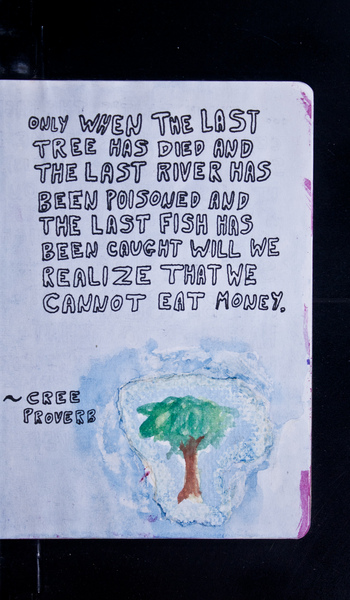 ONLY WHEN THE LAST
TREE HAS DIED AND
THE LAST RIVER HAS
BEEN POISONED AND
THE LAST FISH HAS
BEEN CAUGHT WILL WE
REALIZE THAT WE
CANNOT EAT MONEY.
~CREE
PROVERB